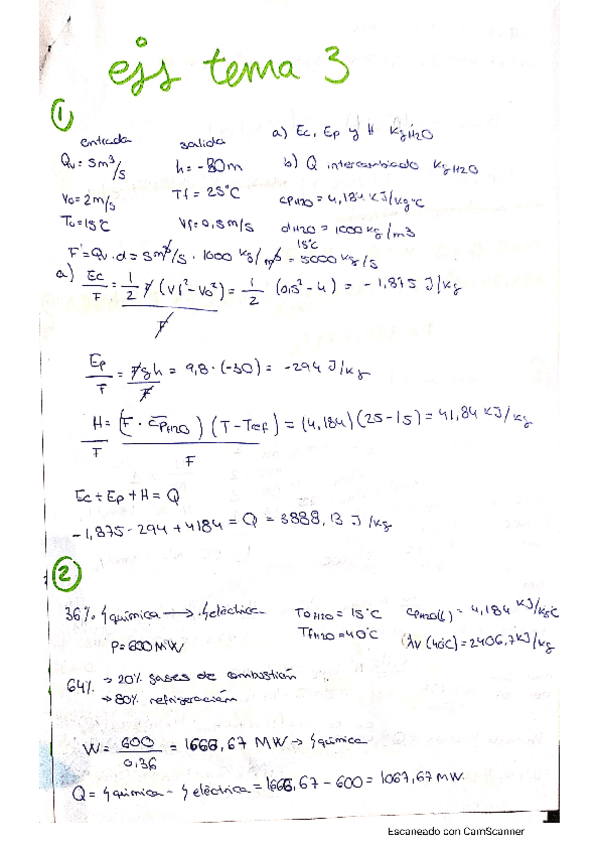 ejs tema 3
①
entrada salida a) Ec, Ep y H kgH2O
Qv = 5m³/s h = -30m b) Q intercambiado kgH2O
v0 = 2m/s Tf = 25°C cpH2O = 4,184 KJ/kg°C
T0 = 15°C Vf = 0,5m/s dH2O 15°C = 1000 kg/m3
F = Qv · d = 5m³/s · 1000 kg/m³ = 5000 kg/s
a) Ec/F = 1/2 F (Vf² - V0²)/F = 1/2 (0,5² - 4) = -1,875 J/kg
Ep/F = Fgh/F = 9,8 · (-30) = -294 J/kg
H/F = (F · cpH2O) (T - Tref)/F = (4,184) (25 - 15) = 41,84 KJ/kg
Ec + Ep + H = Q
-1,875 - 294 + 4184 = Q = 3888,13 J/kg
②
36% química → eléctrica T0 H2O = 15°C cpH2O(l) = 4,184 KJ/kg°C
P = 600 MW Tf H2O = 40°C λv (40°C) = 2406,7 KJ/kg
64% → 20% gases de combustión
→ 80% refrigeración
W = 600/0,36 = 1666,67 MW → química
Q = química - eléctrica = 1666,67 - 600 = 1067,67 MW
Escaneado con CamScanner